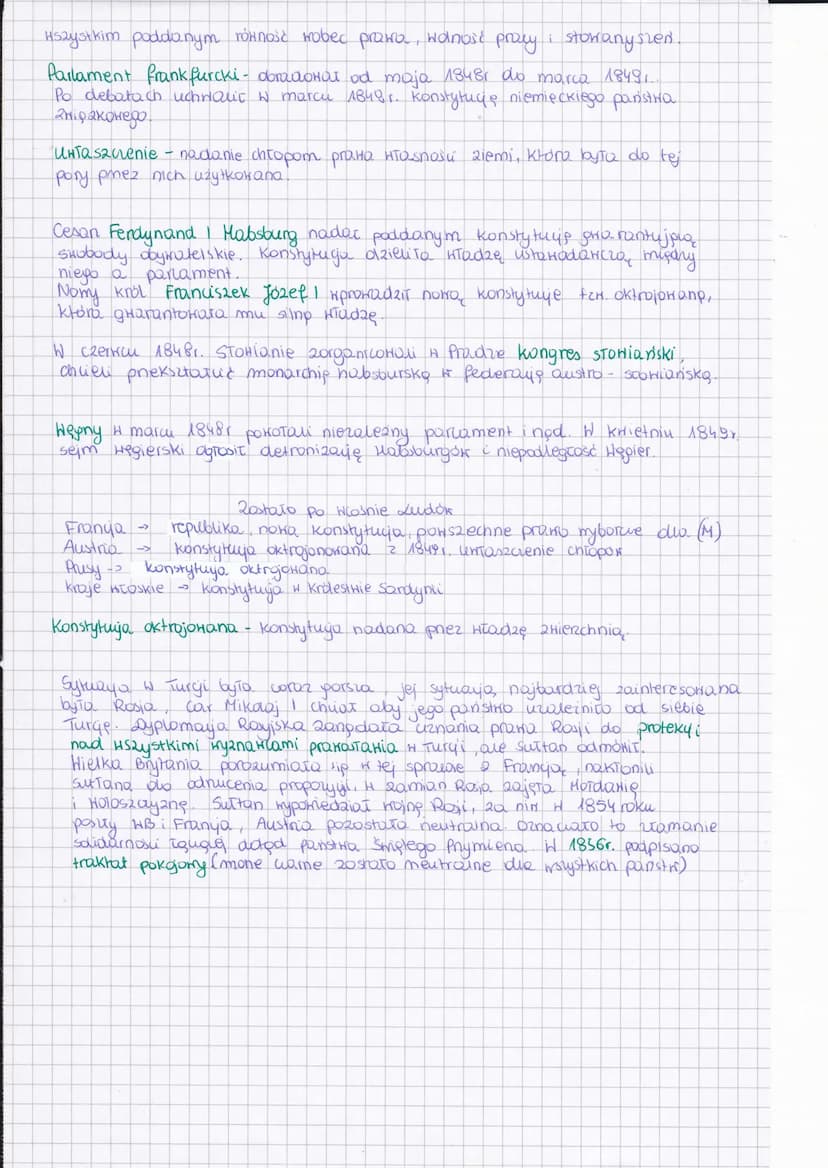 wszystkim poddanym równość wobec prawa, wolność pracy i stowarzyszeń.
Parlament frankfurcki - obradował od maja 1848r do marca 1849r.
Po debatach uchwalił w marcu 1849r. konstytucję niemieckiego państwa
związkowego.
Uwłaszczenie - nadanie chłopom prawa własności ziemi, która była do tej
pory przez nich użytkowana.
Cesarz Ferdynand I Habsburg nadał poddanym konstytucję gwarantującą
swobody obywatelskie. Konstytucja dzieliła władzę ustawodawczą między
niego a parlament.
Nowy król Franciszek Józef I wprowadził nową konstytucje tzw. oktrojowaną,
która gwarantowała mu silną władzę.
W czerwcu 1848r. Słowianie zorganizowali w Pradze kongres słowiański,
chcieli przekształcić monarchię habsburską w federację austro - słowiańską.
Węgry w marcu 1848r powołali niezależny parlament i rząd. W kwietniu 1849r.
sejm węgierski ogłosił detronizację Habsburgów i niepodległość Węgier.
Zostało po Wiośnie Ludów
Francja → republika, nowa konstytucja, powszechne prawo wyborcze dla (M)
Austria → konstytucja oktrojonowana z 1849r. uwłaszczenie chłopów
Prusy -> konstytucja oktrojowana
kraje włoskie → konstytucja w Królestwie Sardynii
Konstytucja oktrojowana - konstytucja nadana przez władzę zwierzchnią.
Sytuacja w Turcji była coraz gorsza, jej sytuacją, najbardziej zainteresowana
była Rosja, car Mikołaj I chciał aby jego państwo uzależniło od siebie
Turcję. Dyplomacja Rosyjska zarządała uznania prawa Rosji do protekcji
nad wszystkimi wyznawcami prawosławia w Turcji, ale sułtan odmówił.
Wielka Brytania porozumiała się w tej sprawie z Francją, nakłonili
sułtana do odrzucenia propozycji, w zamian Rosja zajęła Mołdawię
i Wołoszczyznę. Sułtan wypowiedział wojnę Rosji, za nim w 1854 roku
poszły WB i Francja, Austria pozostała neutralna. Oznaczało to złamanie
solidarności łączącej dotąd państwa Świętego Przymierza. W 1856r. podpisano
traktat pokojowy (morze czarne zostało neutralne dla wszystkich państw)